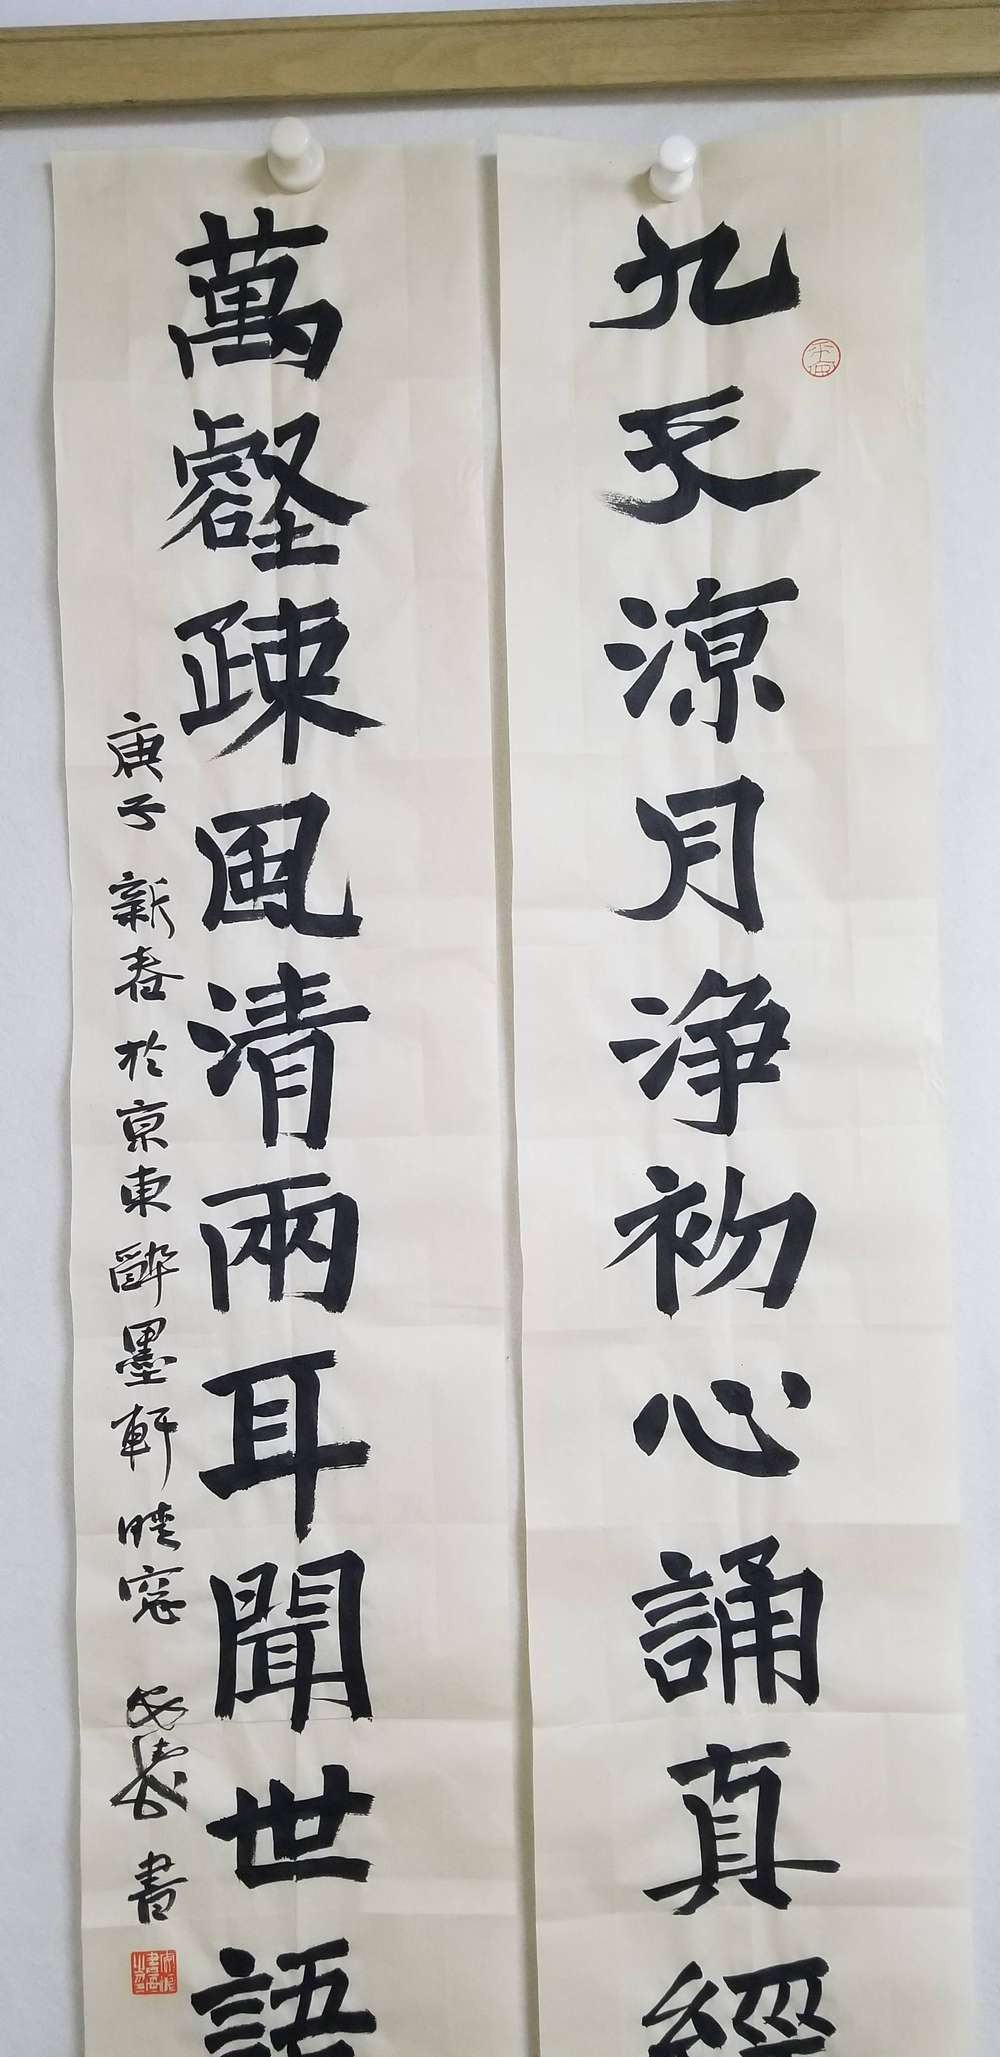 九天凉月净初心誦真經
萬壑疎風清兩耳聞世語
庚子新春於京東醉墨軒晴窓
書